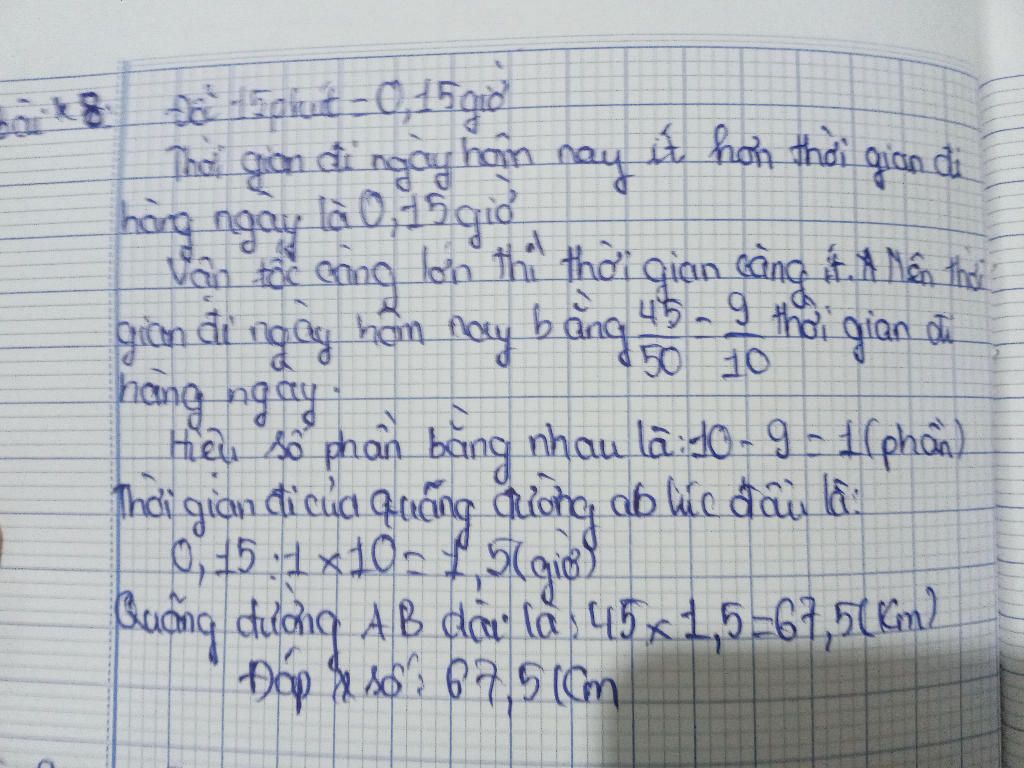 bài 8: Đổi 15 phút = 0,15 giờ
Thời gian đi ngày hôm nay ít hơn thời gian đi
hàng ngày là 0,15 giờ
Vận tốc càng lớn thì thời gian càng ít. Nên thời
gian đi ngày hôm nay bằng 45/50 = 9/10 thời gian đi
hàng ngày.
Hiệu số phần bằng nhau là: 10 - 9 = 1 (phần)
Thời gian đi của quãng đường ab lúc đầu là:
0,15 : 1 x 10 = 1,5 (giờ)
Quãng đường AB dài là: 45 x 1,5 = 67,5 (Km)
Đáp số: 67,5 Km